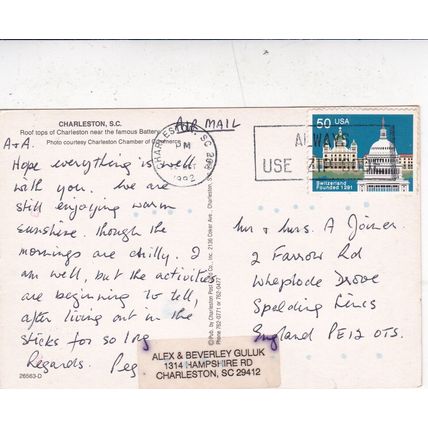 CHARLESTON, S.C.
Roof tops of Charleston near the famous Battery
Photo courtesy Charleston Chamber of Commerce
A+A.
Hope everything is well
with you. We are
still enjoying warm
sunshine. Though the
mornings are chilly. I
am well, but the activities
are beginning to tell,
after living out in the
sticks for so long
Regards. Peg
26563-D
© Pub. by Charleston Post Card Co., Inc. Charleston,
Phone 762-0771 or 762-0477
AIR MAIL
CHARLESTON, SC
PM
1992
ALWAYS
USE ZIP CODES
50 USA
Switzerland
Founded 1291
Mr & Mrs. A Joiner.
2 Farrow Rd
Whaplode Drove
Spalding Lincs
England PE12 0TS.
ALEX & BEVERLEY GULUK
1314 HAMPSHIRE RD
CHARLESTON, SC 29412